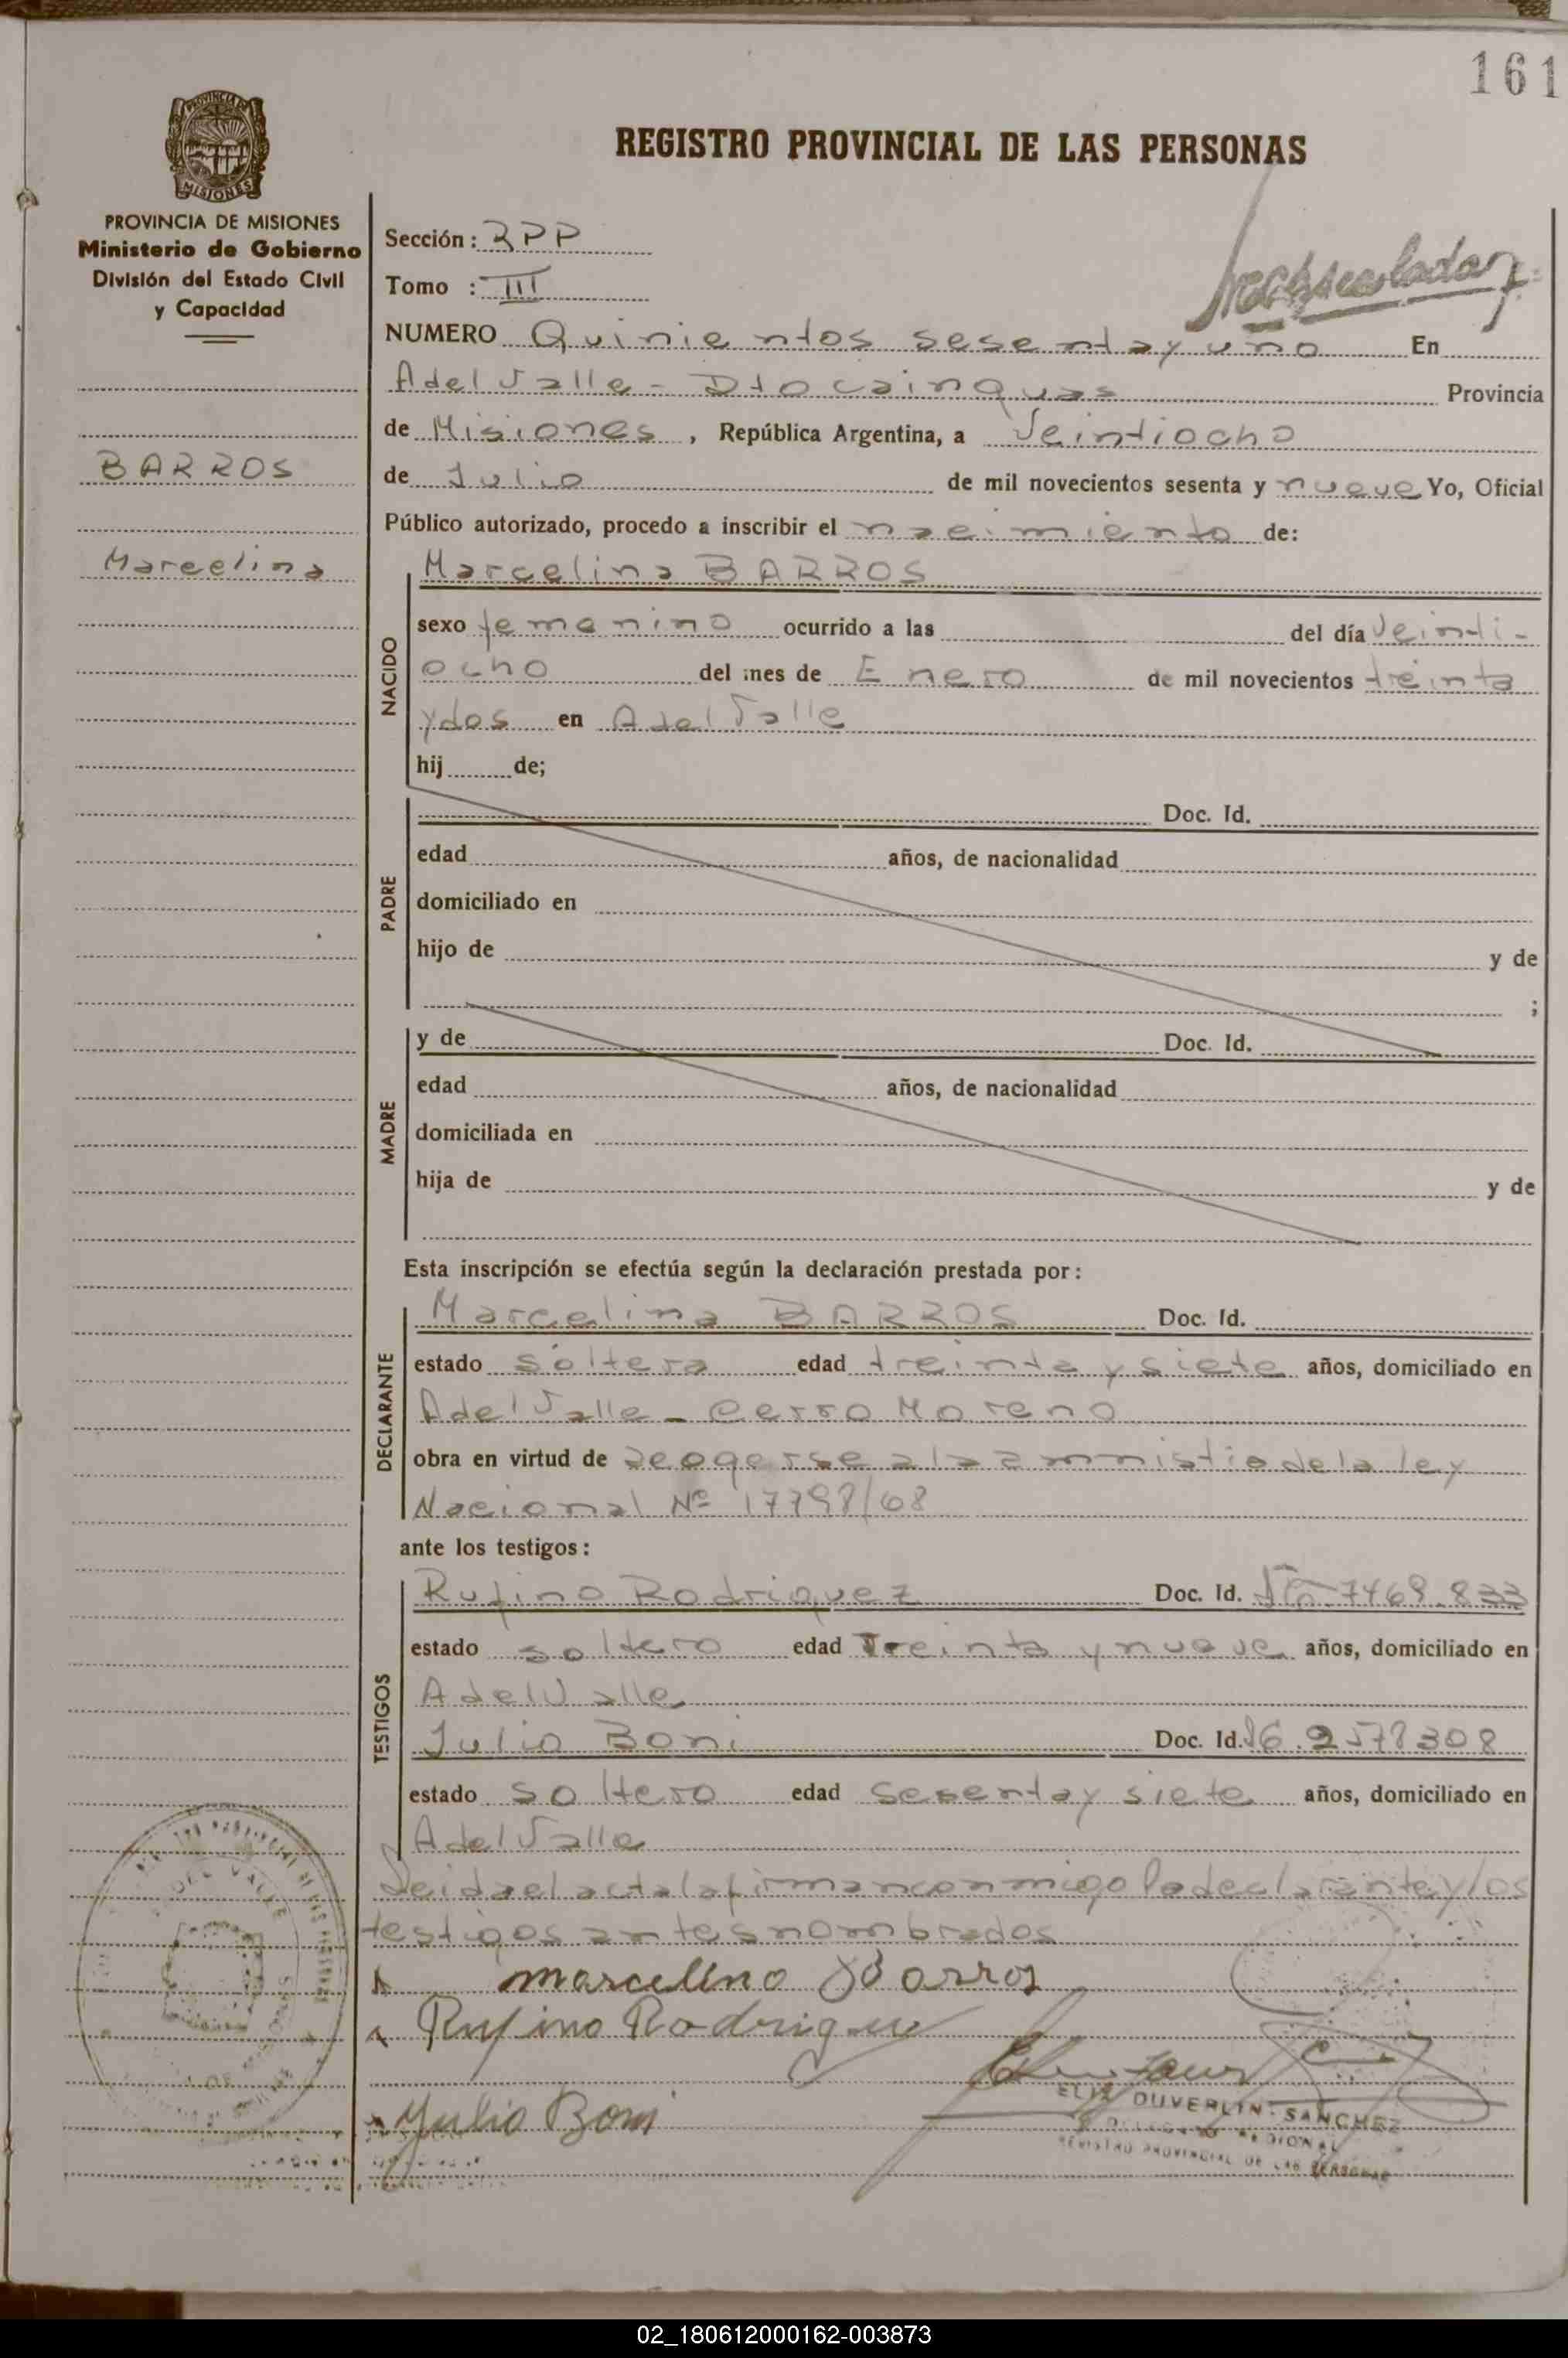 161
REGISTRO PROVINCIAL DE LAS PERSONAS
PROVINCIA DE
MISIONES
PROVINCIA DE MISIONES
Ministerio de Gobierno
División del Estado Civil
y Capacidad
BARROS
Marcelina
Sección: RPP
Tomo : III
NUMERO Quinientos sesenta y uno En
A del Valle - Dto Cainguas Provincia
de Misiones, República Argentina, a Veintiocho
de Julio de mil novecientos sesenta y nueve Yo, Oficial
Público autorizado, procedo a inscribir el nacimiento de:
NACIDO
Marcelina BARROS
sexo femenino ocurrido a las del día Veinti-
ocho del mes de Enero de mil novecientos treinta
y dos en A del Valle
hij de;
PADRE
Doc. Id.
edad años, de nacionalidad
domiciliado en
hijo de y de
;
MADRE
y de Doc. Id.
edad años, de nacionalidad
domiciliada en
hija de y de
Esta inscripción se efectúa según la declaración prestada por:
DECLARANTE
Marcelina BARROS Doc. Id.
estado soltera edad treinta y siete años, domiciliado en
A del Valle - Cerro Moreno
obra en virtud de acogerse a la amnistia de la ley
Nacional Nº 17798/68
ante los testigos:
TESTIGOS
Rufino Rodriguez Doc. Id. 7469.833
estado soltero edad Treinta y nueve años, domiciliado en
A del Valle
Julio Boni Doc. Id. 2578308
estado soltero edad sesenta y siete años, domiciliado en
A del Valle
Leida el acta la firman conmigo la declarante y los
testigos antes nombrados
marcelino Barros
Rufino Rodriguez
Julio Boni
DUVERLIN SANCHEZ
REGISTRO PROVINCIAL DE LAS PERSONAS
02_180612000162-003873